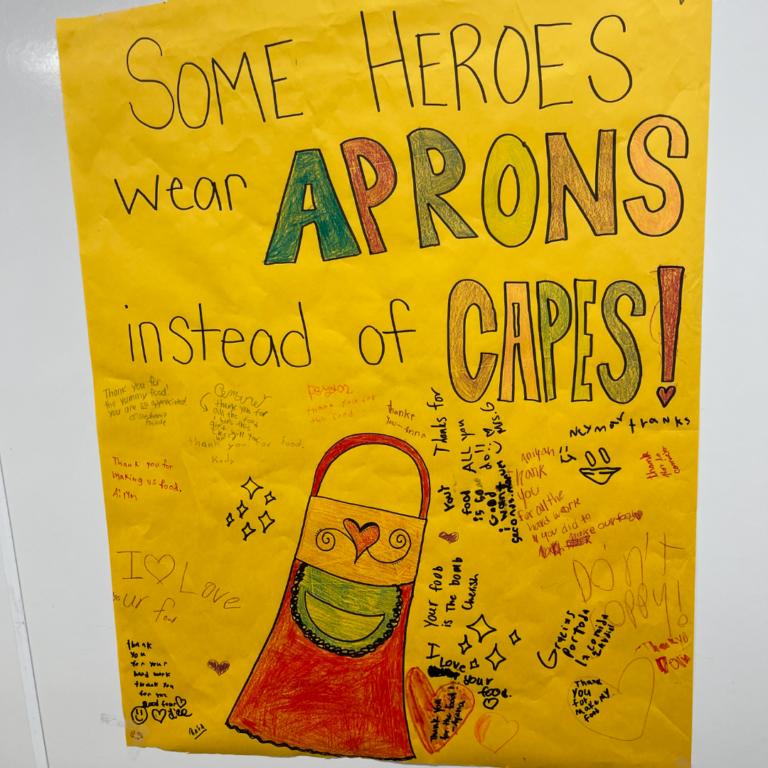 SOME HEROES
wear APRONS
instead of CAPES!
Thank you for
the yummy food!
you are so appreciated
thank you for
all the food
thank you for food.
Kody
thank you for
the food
Thanks for
ALL you
do!!
Your
food
is so
good
i want
seconds
Neymar thanks
Aniyah
thank
you
for all the
hard work
you did to
make our food
thank
you
Thank you for
making us food.
I ♡ Love
our food
Your foob
is The bomb
Cherish
I
Love
your
food.
Thank you
for the food
Gracias
Por toda
la comida
DON'T
thank
you
for your
hard work
thank you
for the
good food
Thank
you
for
making
food
Thank u